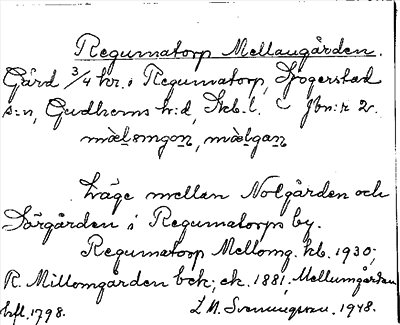 Regumatorp Mellangården.
Gård 3/4 hr. i Regumatorp, Segerstad
s:n, Gudhems h:d, Skb. l. Jbn:r 2.
mæl̲smgon̲, mæl̲gan̲
Läge mellan Nolgården och
Sörgården i Regumatorps by.
Regumatorp Mellomg. kb. 1930;
R. Millomgården bck; ek. 1881; Mellumgården
hfl. 1798. L M. Svenungsson. 1948.